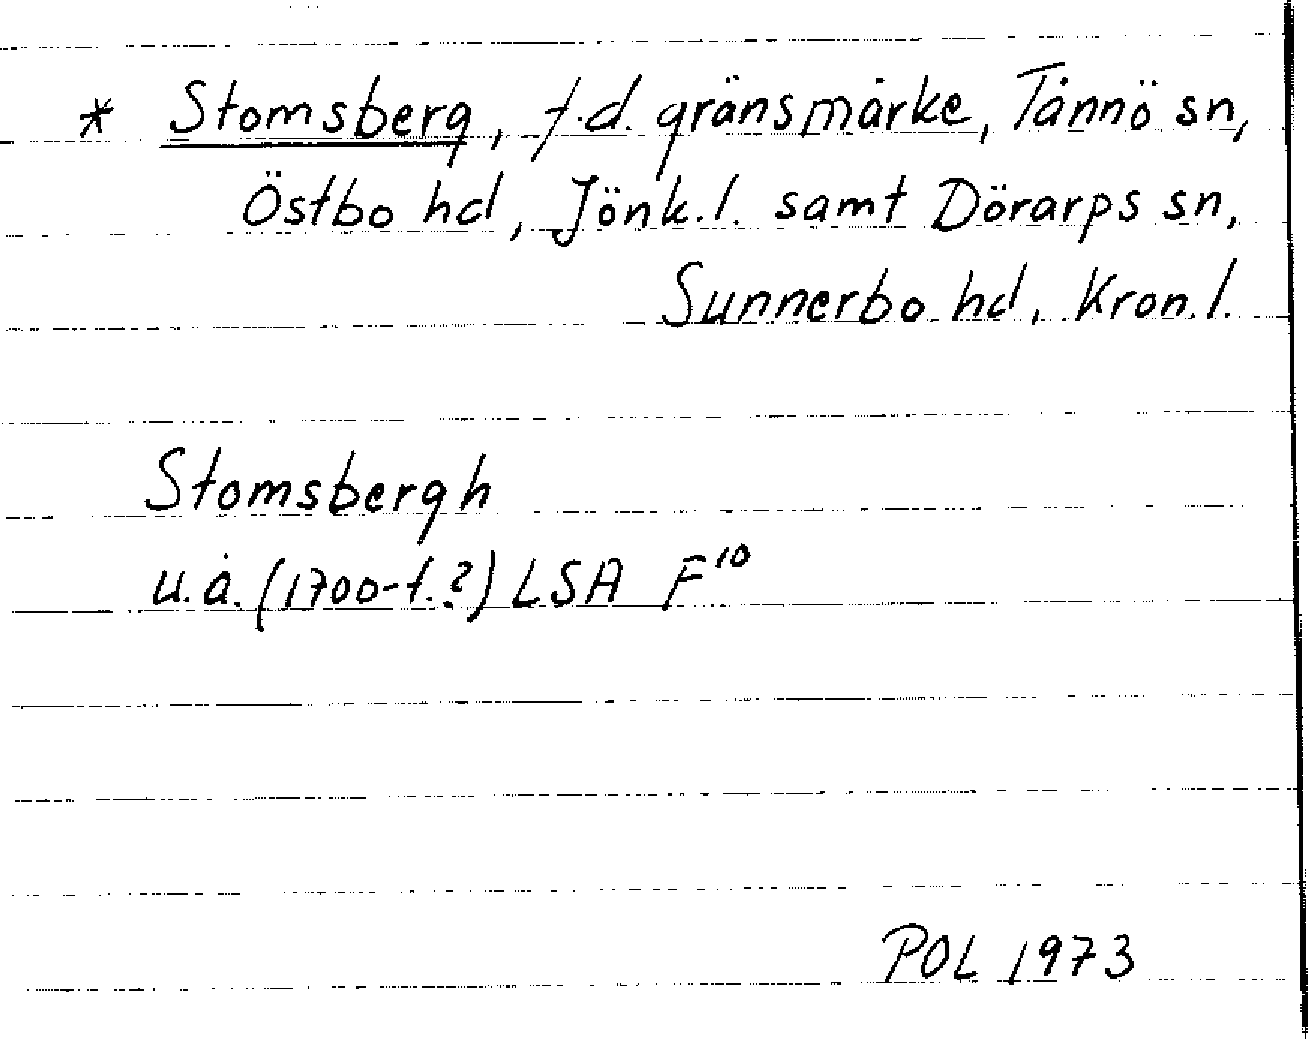 * Stomsberg, f.d. gränsmärke, Tånnö sn,
Östbo hd, Jönk.l. samt Dörarps sn,
Sunnerbo hd, Kron.l.
Stomsbergh
u.å. (1700-t.?) LSA F¹⁰
POL 1973